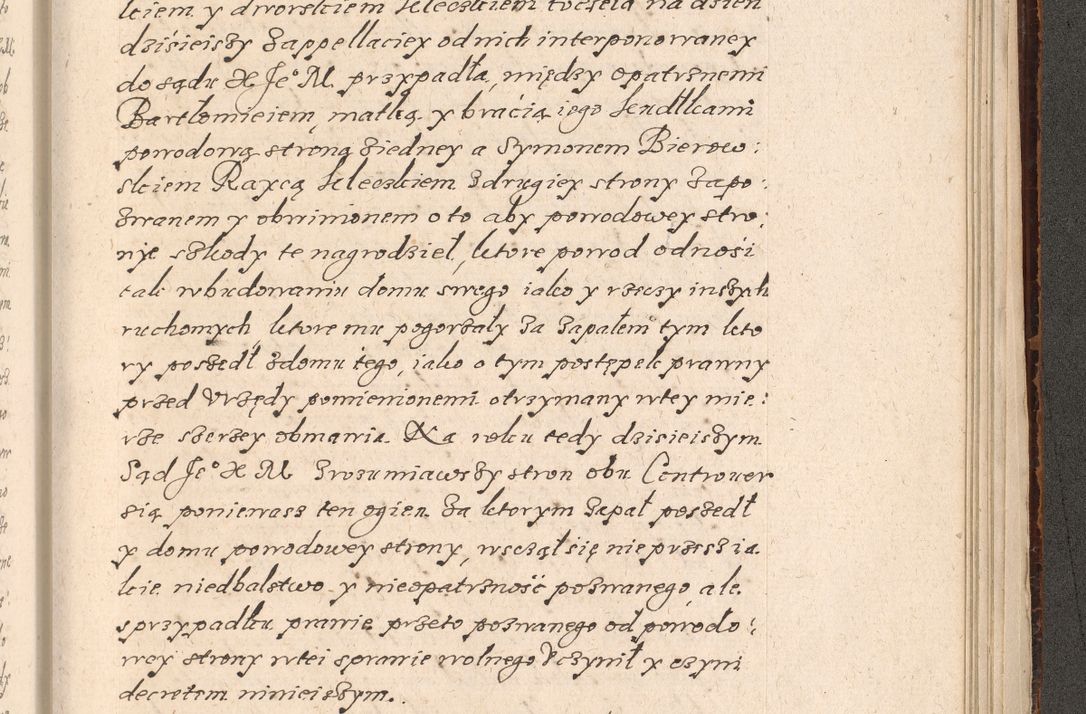 kiem y dworskiem Kleczkiem toczela na dzien
dzisieiszy zappellaciey od nich interponowaney
do sądu X Je° M. przypadła, między opatrznemi
Bartłomieiem, matką y bracią iego Kendłkami
powodową stroną ziedney a Symonem Bierow:
skiem Raycą Kleczkiem zdrugiey strony zapo:
zwanem y obwinionem o to aby powodowey stro:
nie szkody te nagrodzieł, ktore powod odnosi
tak wbudowaniu domu swego iako y rzeczy inszych
ruchomych, ktore mu pogorzały za zapałem tym kto
ry poszedł zdomu tego, iako o tym postępek prawny
przed Vrzędy pomienionemi otrzymany wtey mie:
rze szerzey obmawia. Na roku tedy dzisieiszym
Sąd Je° X M zrozumiawszy stron obu Controuer
sią poniewasz ten ogien za ktorym zapał poszedł
y domu powodowey strony, wsczął się nie przesz ia
kie niedbalstwo y nieopatrzność pozwanego, ale
sprzypadku prawie przeto pozwanego od powodo:
wey strony wtei sprawie wolnego Vczynił y czyni
decretem ninieiszym.